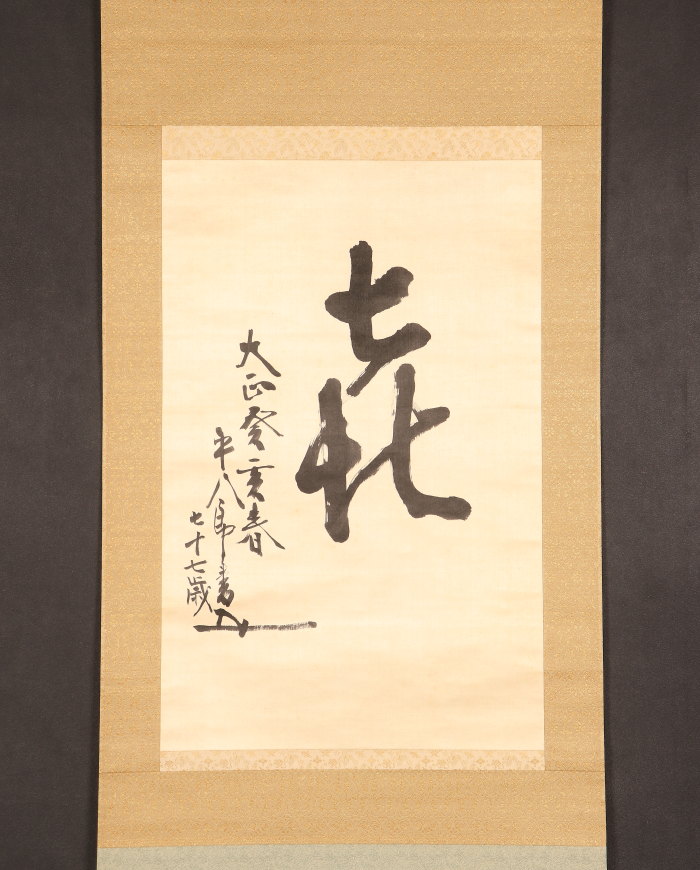 㐂
大正癸亥春
平八郎書
七十七歳